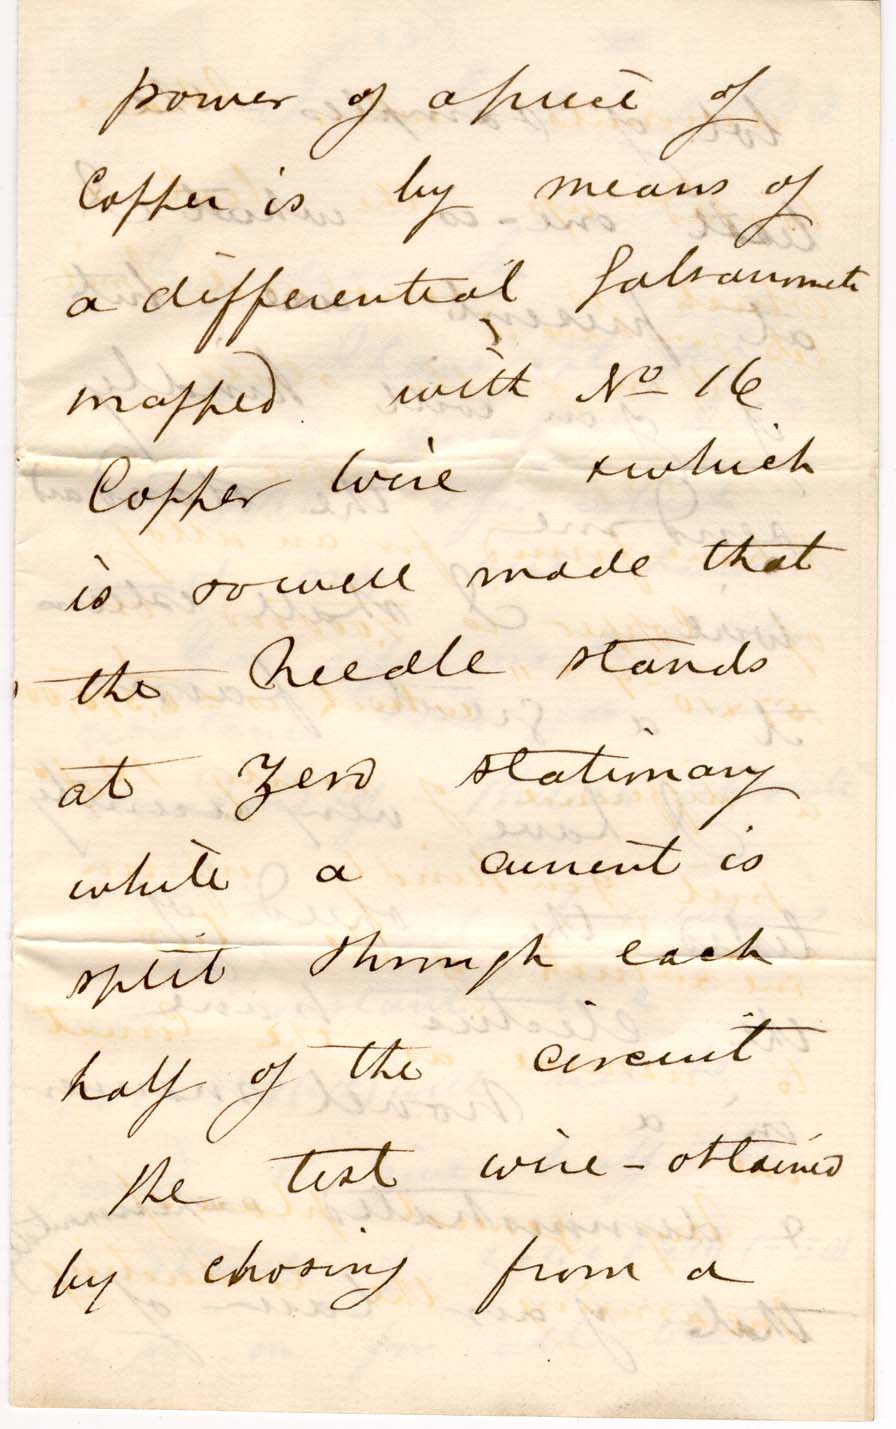 power of a piece of
Copper is by means of
a differential Galvanomete
wrapped with No 16
Copper Wire & which
is so well made that
the Needle stands
at Zero stationary
while a current is
split through each
half of the circuit
The test wire - obtained
by chosing from a